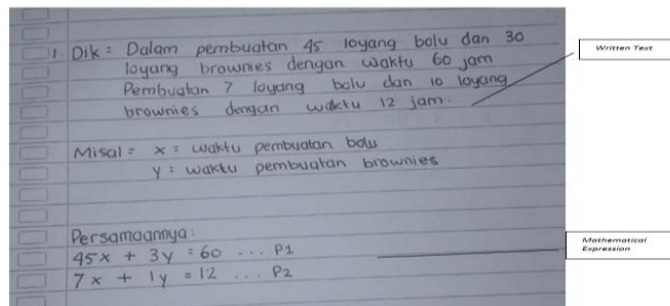 1. Dik : Dalam pembuatan 45 loyang bolu dan 30
loyang brownies dengan waktu 60 jam
Pembuatan 7 loyang bolu dan 10 loyang
brownies dengan waktu 12 jam.
Written Text
Misal : x = waktu pembuatan bolu
y = waktu pembuatan brownies
Persamaannya :
45x + 3y = 60 ... P1
7x + 1y = 12 ... P2
Mathematical
Expression